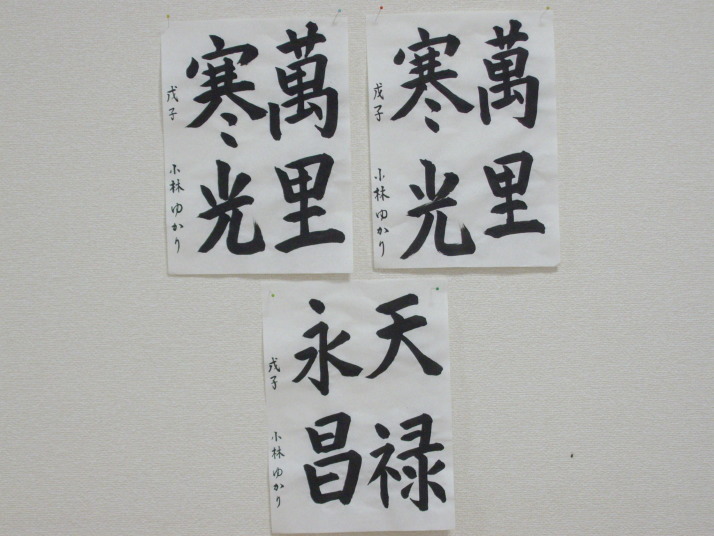 萬里
寒光
戊子 小林ゆかり
萬里
寒光
戊子 小林ゆかり
天禄
永昌
戊子 小林ゆかり